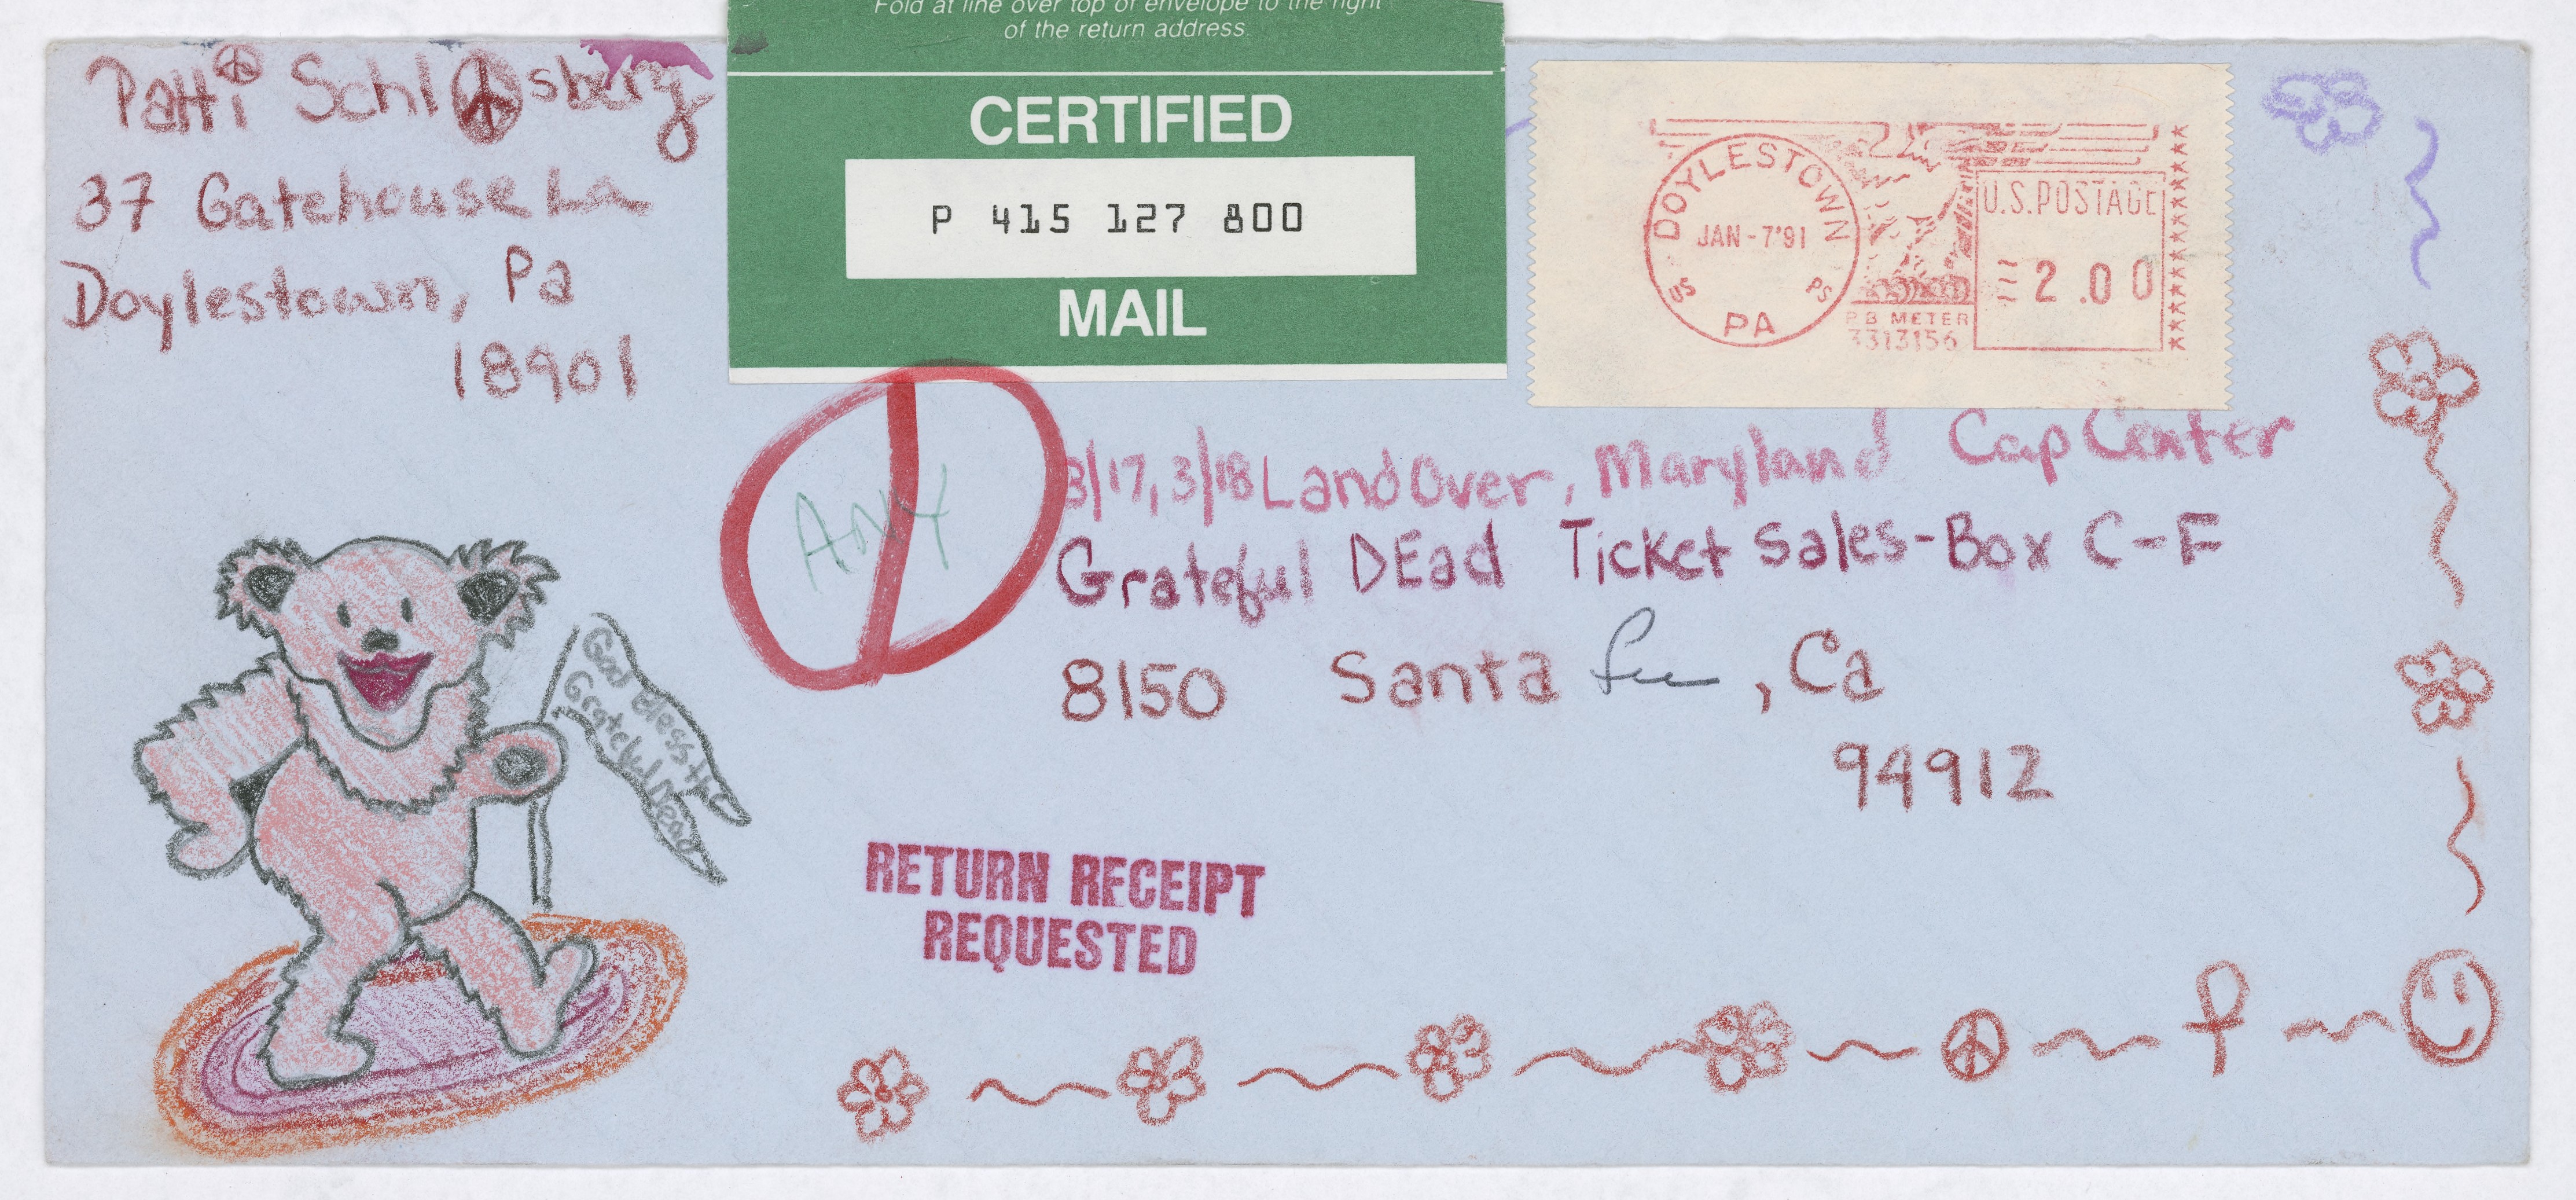 Patti Schlosberg
37 Gatehouse La
Doylestown, Pa
18901
Fold at line over top of envelope to the right
of the return address.
CERTIFIED
P 415 127 800
MAIL
DOYLESTOWN
JAN-7'91
US PS
PA
P B METER
3313156
U.S. POSTAGE
2.00
ANY
3/17, 3/18 Land Over, Maryland Cap Center
Grateful DEad Ticket Sales-Box C-F
8150 Santa , Ca
94912
God Bless the
Grateful Dead
RETURN RECEIPT
REQUESTED